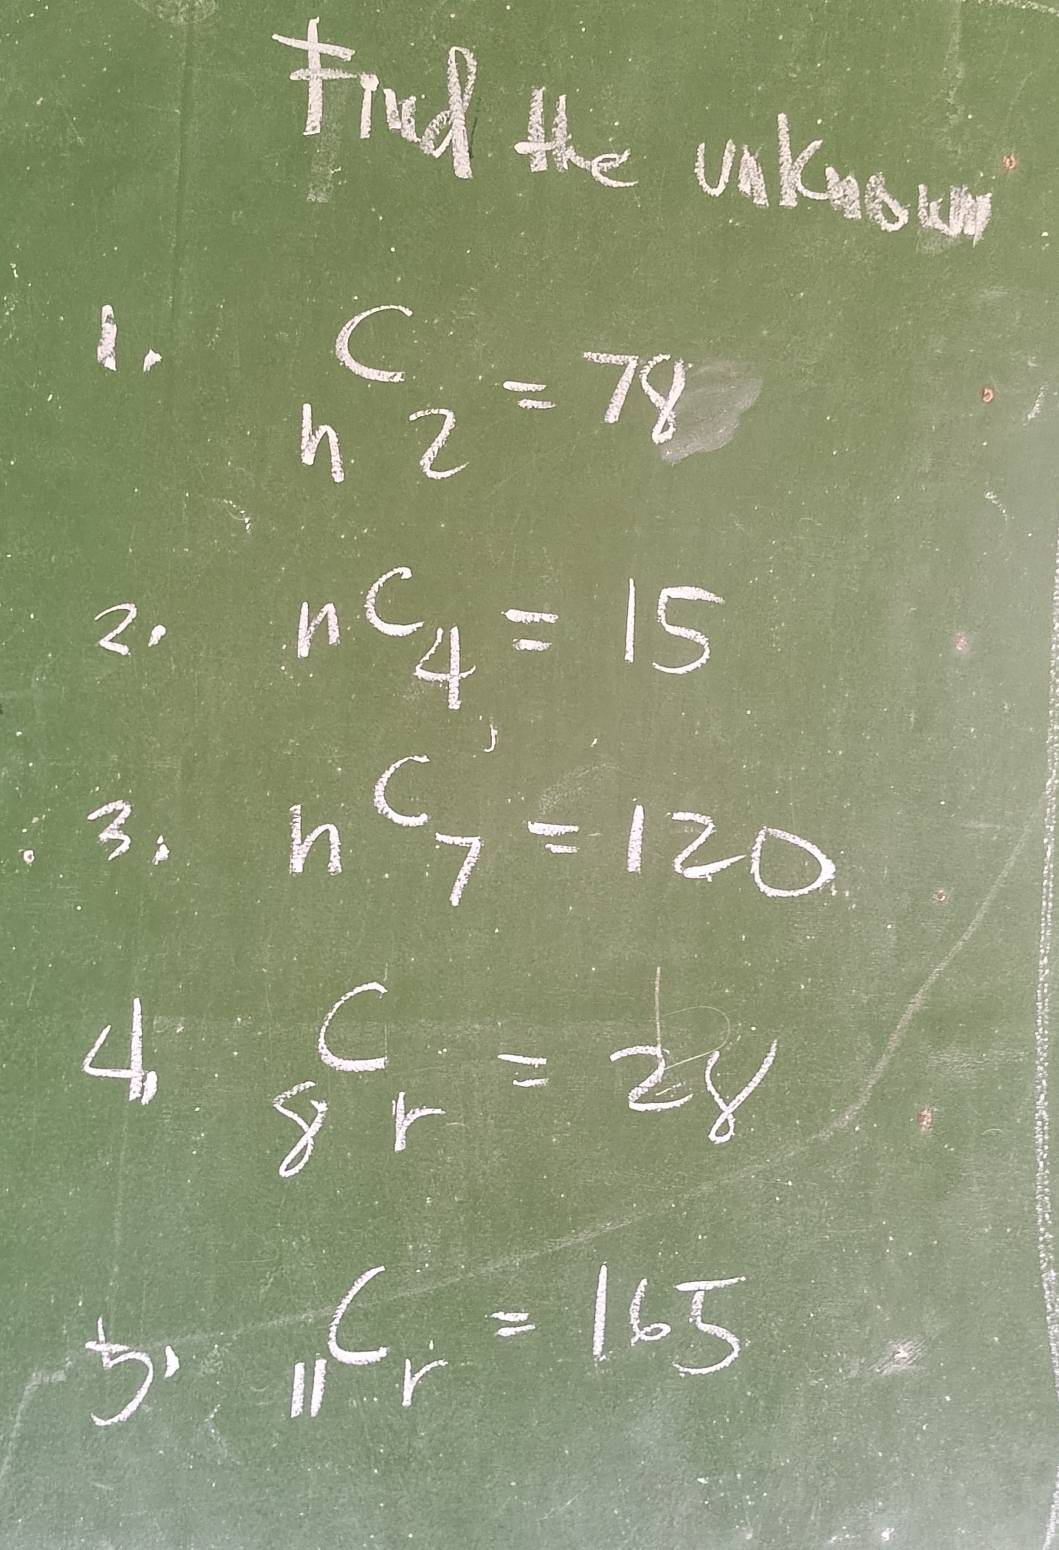 Find the unknown
1. nC2 = 78
2. nC4 = 15
3. nC7 = 120
4. 8Cr = 28
5. 11Cr = 165